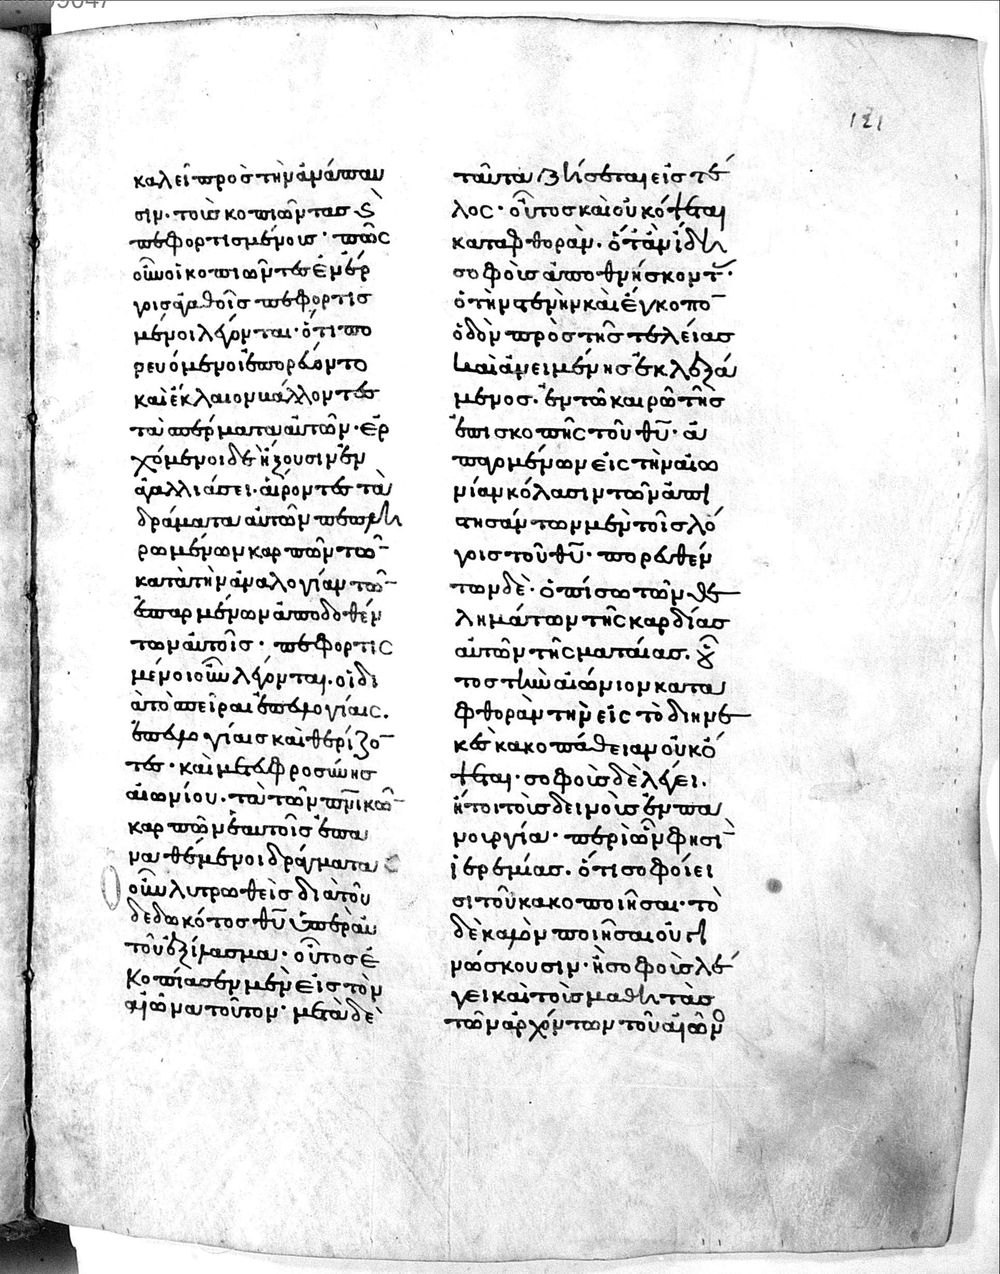 121
καλεῖ πρὸς τὴν ἀνάπαυ
σιν· τοὺς κοπιῶντας ϗ
πεφορτισμένους· πῶς
οὖν οἱ κοπιῶντες ἐν ἔρ
γοις ἀγαθοῖς πεφορτισ
μένοι λέγονται· ὅτι πο
ρευόμενοι ἐπορεύοντο
καὶ ἔκλαιον βάλλοντες
τὰ σπέρματα αὐτῶν· ἐρ
χόμενοι δὲ ἥξουσιν ἐν
ἀγαλλιάσει· αἴροντες τὰ
δράγματα αὐτῶν πεπλη
ρωμένων καρπῶν τῶν
κατὰ τὴν ἀναλογίαν τῶν
ἐσπαρμένων ἀποδοθέν
των αὐτοῖς· πεφορτισ
μένοι οὖν λέγονται· οἱ δι
ὰ τὸ σπεῖραι ἐπ' εὐλογίαις·
ἐπ' εὐλογίαις καὶ θερίζον
τες· καὶ μετ' εὐφροσύνης
αἰωνίου· τὰ τῶν πνικῶν
καρπῶν ἑαυτοῖς ἐπα
ναθέμενοι δράγματα
οὖν λυτρωθεὶς διὰ τοῦ
δεδωκότος θῦ ὑπὲρ αὐ
τοῦ ἐξίλασμα· οὗτος ἐ
κοπίασεν μὲν εἰς τὸν
αἰῶνα τοῦτον· μετὰ δὲ
ταῦτα ζήσεται εἰς τέ
λος· οὗτος καὶ οὐκ ὄψεται
καταφθοράν· ὅταν ἴδῃ
σοφοὺς ἀποθνήσκοντ·
ὁ τὴν στενὴν καὶ ἔγκοπον
ὁδὸν πρὸς τῆς τελείας
καὶ ἀνειμένης ἐκλεξά
μενος· ἐν τῶ καιρῶ τῆς
ἐπισκοπῆς τοῦ θῦ· ἀ
παρμένων εἰς τὴν αἰω
νίαν κόλασιν τῶν ἀπει
θησάντων μὲν τοῖς λό
γοις τοῦ θῦ· πορευθέν
των δὲ· ὀπίσω τῶν θε
λημάτων τῆς καρδίας
αὐτῶν τῆς ματαίας· οὗ
τος τὴν αἰώνιον κατα
φθορὰν τὴν εἰς τὸ διηνε
κὲς κακοπάθειαν οὐκ ὄ
ψεται· σοφοὺς δὲ λέγει·
ἤτοι τοὺς δεινοὺς ἐν πα
νουργία· περὶ ὧν φησὶ
ἱερεμίας· ὅτι σοφοί εἰ
σι τοῦ κακοποιῆσαι· τὸ
δὲ καλὸν ποιῆσαι οὐ γι
νώσκουσιν· ἢ σοφοὺς λέ
γει καὶ τοὺς μαθητὰς
τῶν ἀρχόντων τοῦ αἰῶνο